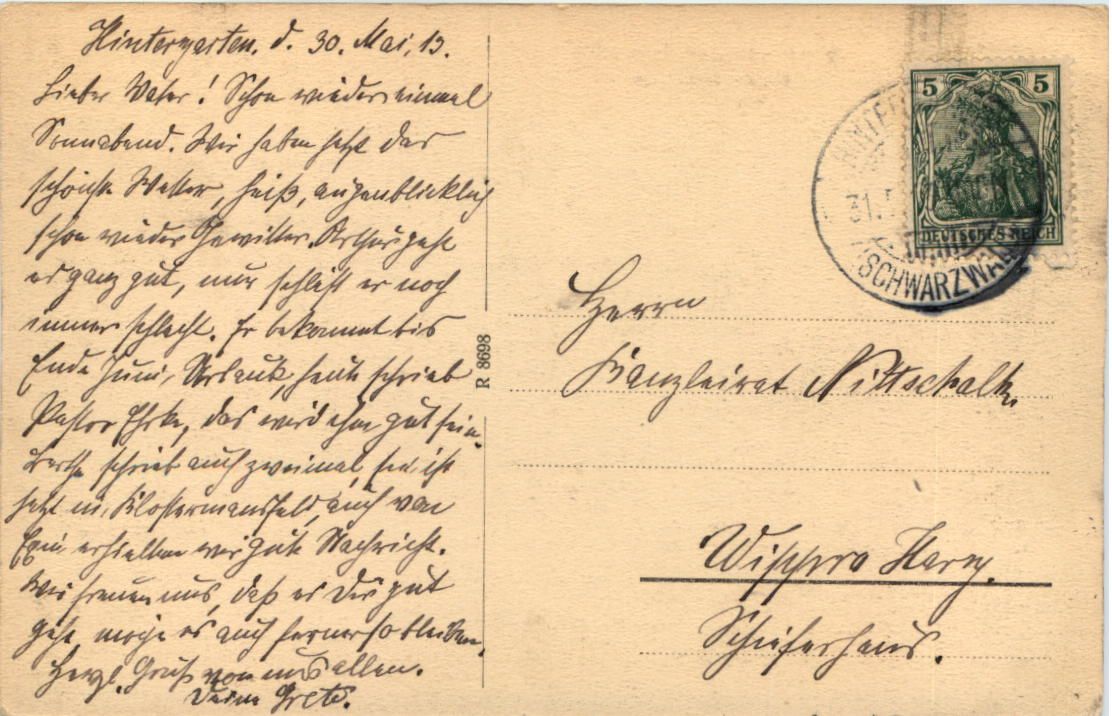 Hintergarten, d. 30. Mai, 13.
Lieber Vater! Schon wieder einmal
Sonnabend. Wir haben jetzt das
schönste Wetter, heiß, augenblicklich
schon wieder Gewitter. Arthur geht
es ganz gut, nur schläft er noch
immer schlecht. Er bekommt bis
Ende Juni, Urlaub, heute schrieb
Pastor das wird ihm gut sein.
schrieb auch zweimal, sie ist
jetzt in Klostermansfeld, auch von
erhielten wir gute Nachricht.
Wir freuen uns, daß es Dir gut
geht, möge es auch ferner so bleiben.
Herzl. Gruß von uns allen.
Deine Grete.
R 8698
5 5
DEUTSCHES REICH
31.
(SCHWARZWALD)
Herrn
Kanzleirat Nittschalk.
Wippra Harz.
Schieferhaus.